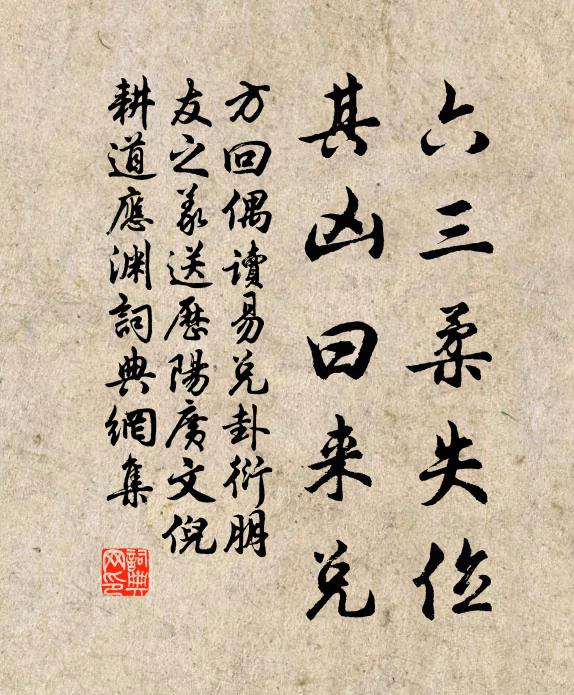 六三柔失位
其凶曰来兑
方回偶讀易兑卦衍朋
友之義送歷陽廣文倪
耕道應淵詞典網集
詞典
网印